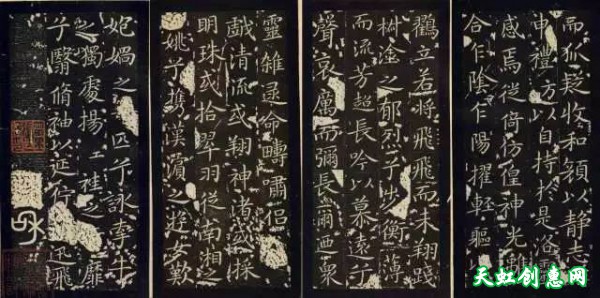 而狐疑收和顏以静志
申禮防以自持於是洛
感焉徙倚彷徨神光離
合乍陰乍陽擢輕軀以
鶴立若將飛飛而未翔踐
椒塗之郁烈兮步衡薄
而流芳超長吟以慕遠兮
聲哀厲而彌長爾迺衆
靈雜遝命疇嘯侶
戲清流或翔神渚或採
明珠或拾翠羽從南湘之
姚兮携漢濱之遊女歎
妃媧之匹兮詠牽牛
之獨處揚袿之靡
兮翳脩袖以延佇迅飛
天虹创惠网